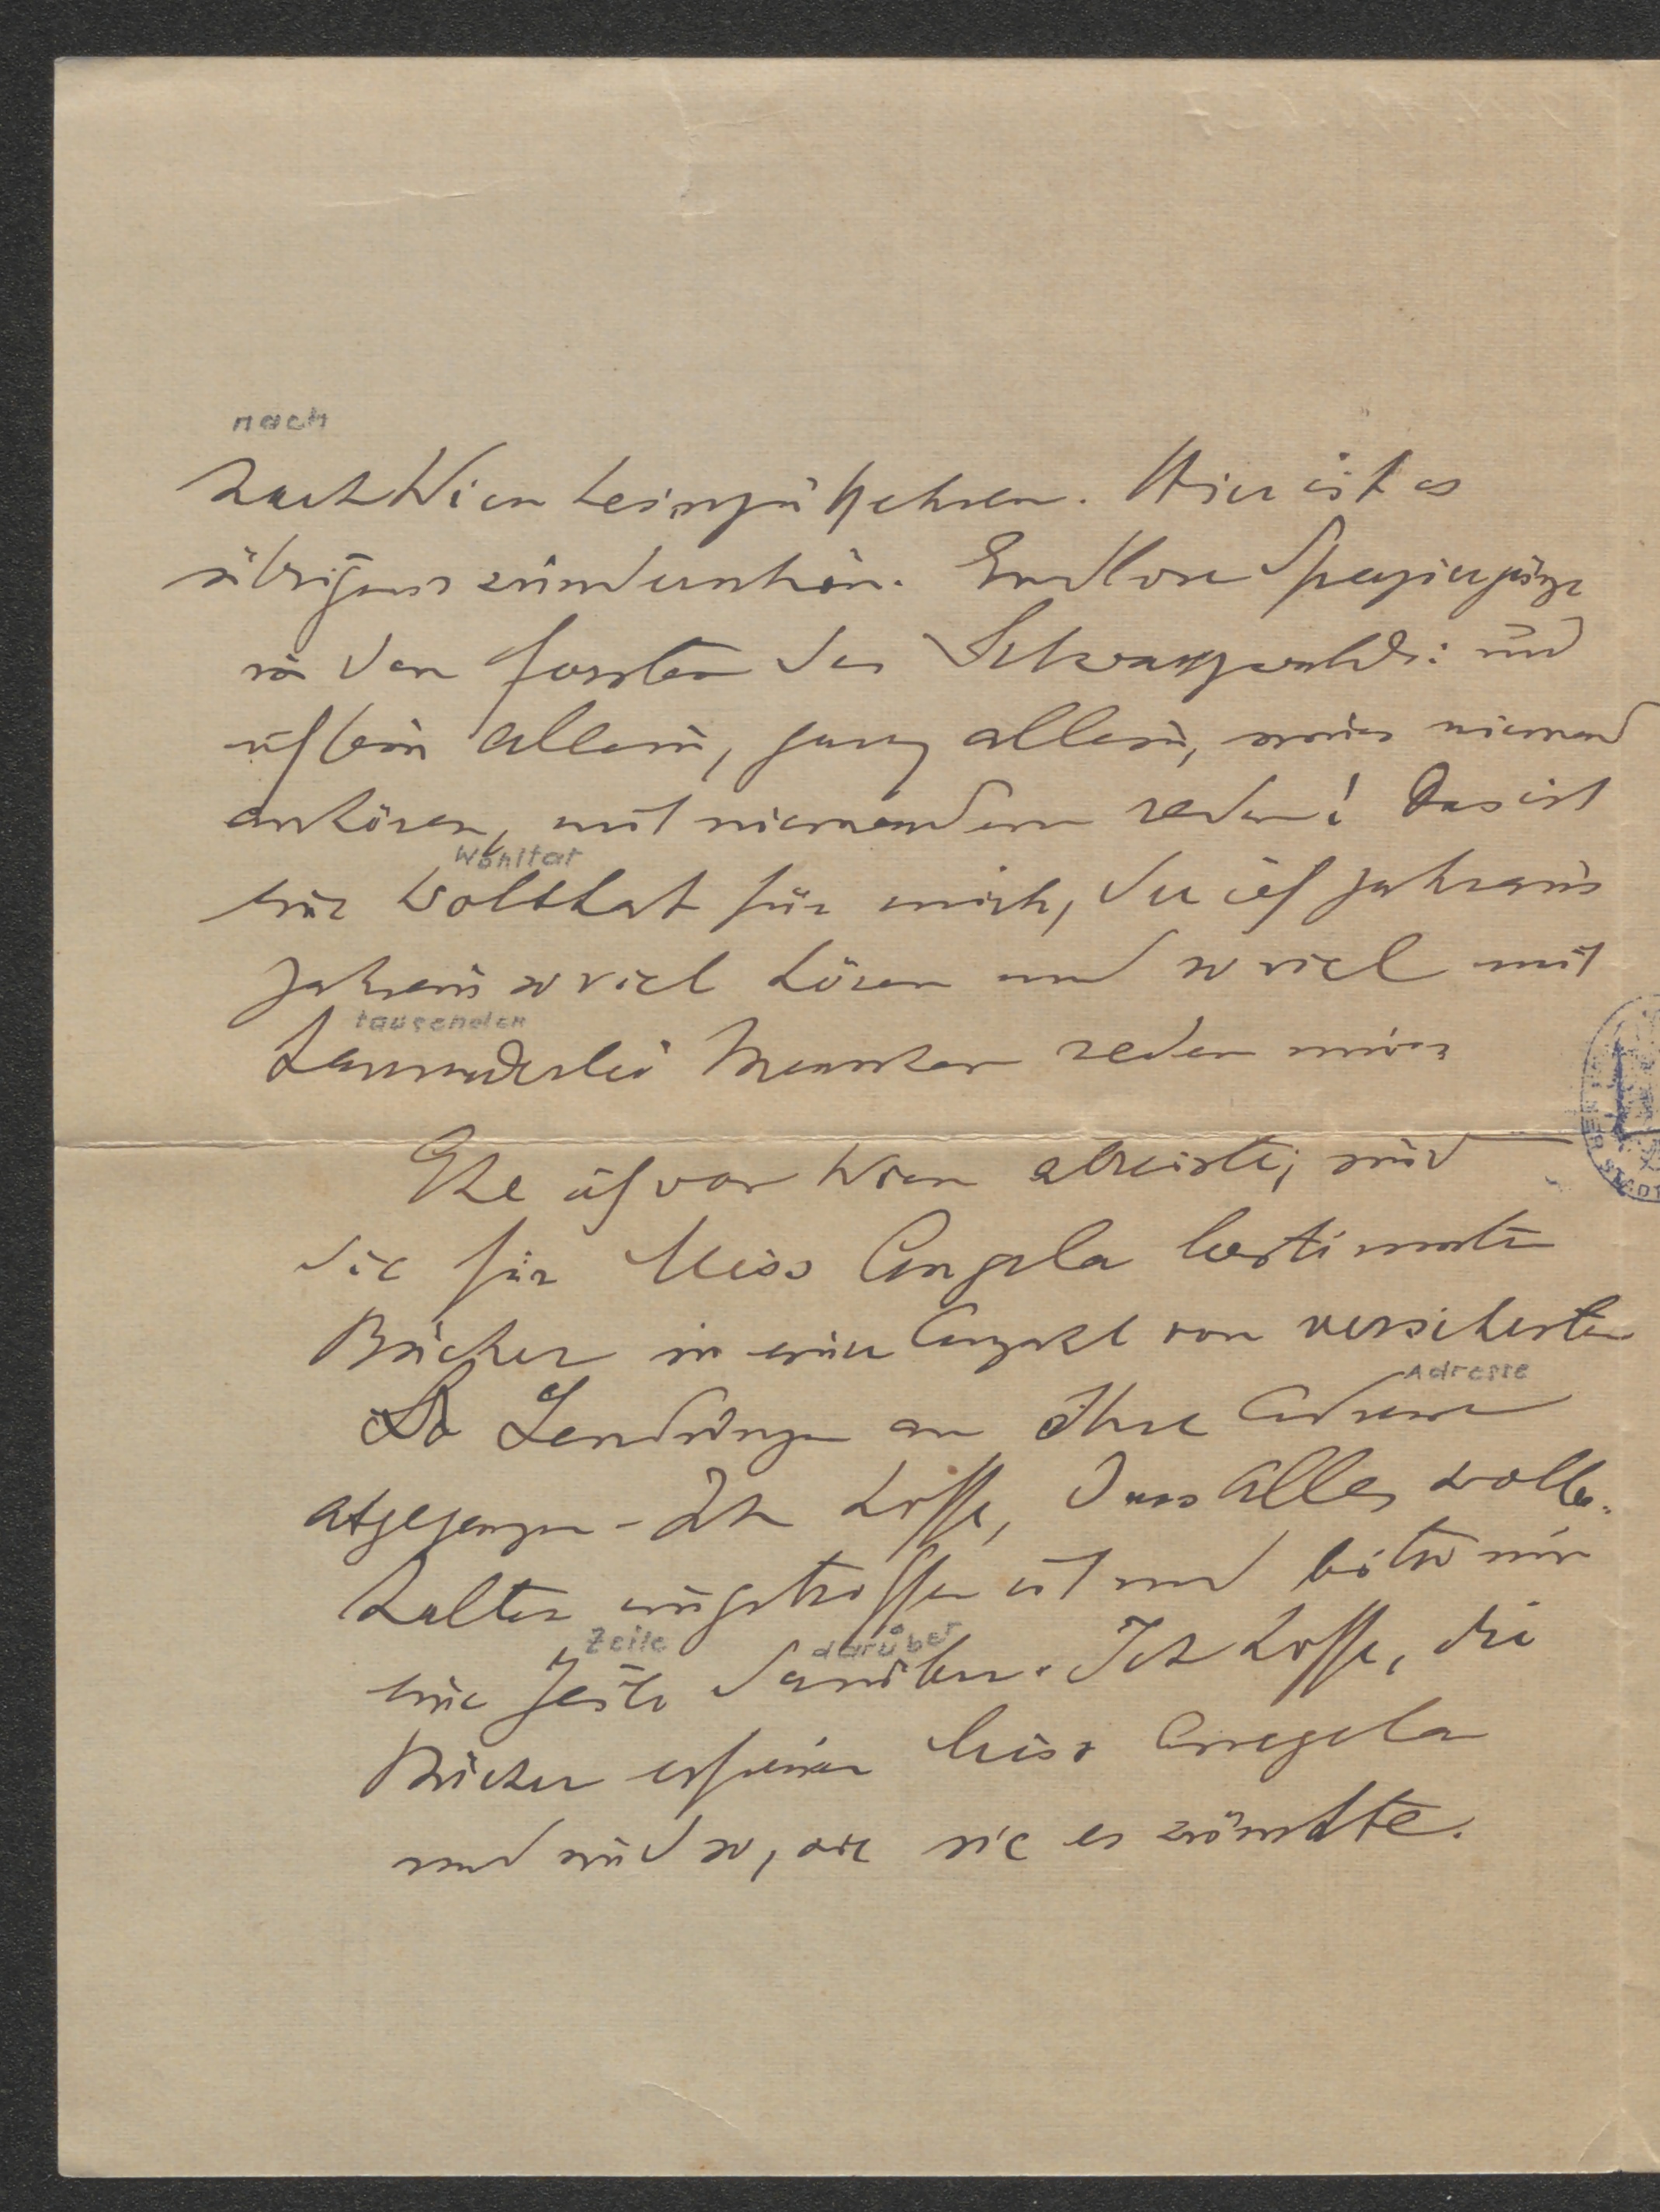 nach
nach Wien heimzukehren. Hier ist es
übrigens wunderschön. Endlose Spaziergänge
in den Forsten des Schwarzwalds: und
ich bin allein, ganz allein, muss niemand
anhören, mit niemandem reden! Das ist
Wohltat
eine Wolthat für mich, der ich jahraus
jahrein so viel hören und so viel mit
tausenden
tausenderlei Menschen reden muss
Ehe ich von Wien abreiste, sind
die für Miss Angela bestimmten
Bücher in einer Anzahl von versicherten
Adresse
Sendungen an Ihre Adresse
abgegangen - Ich hoffe, dass alles wolbe-
halten eingetroffen ist und bitte um
Zeile darüber
eine Zeile darüber. Ich hoffe, die
Bücher erfreuen Miss Angela
und sind so, wie sie es wünschte.